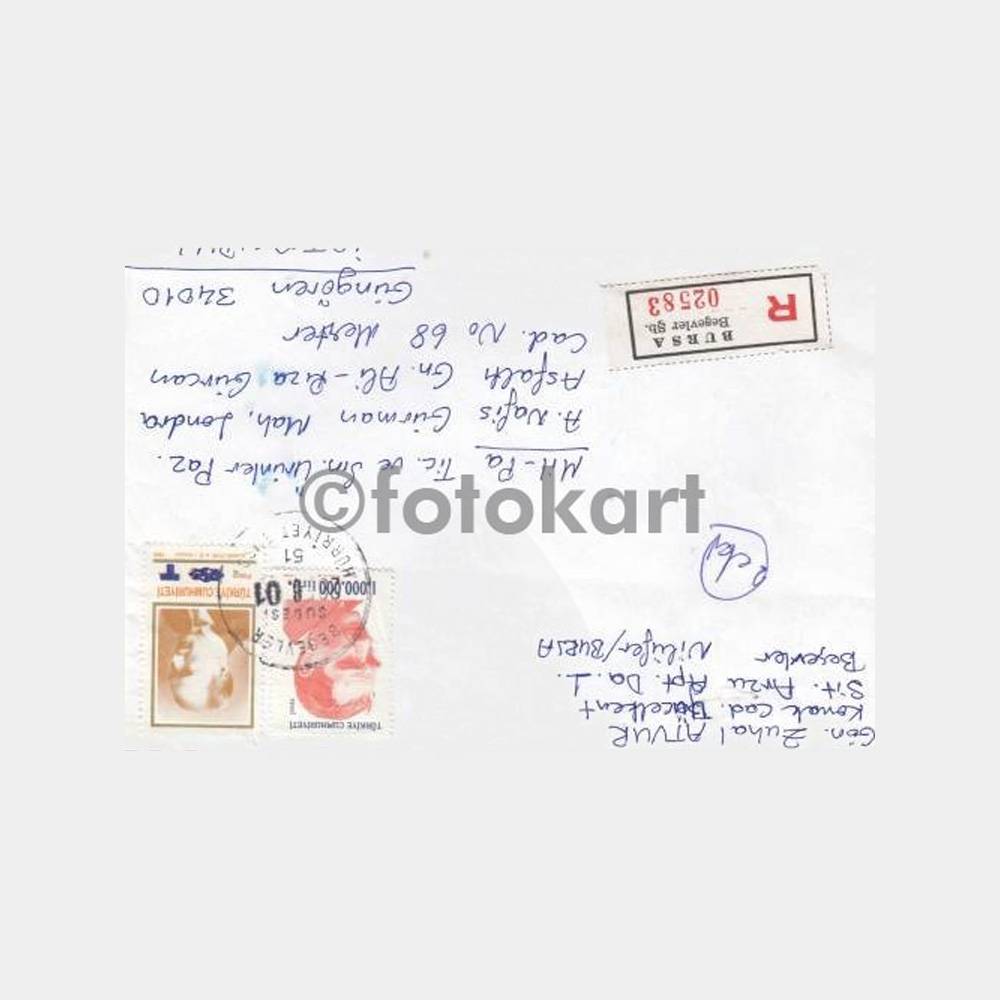 Gön. Zuhal ATVUR
Konak Cad. Öğcelkent
Sit. Arzu Apt. Da. 1.
Beşevler
Nilüfer/BURSA
TÜRKİYE CUMHURİYETİ
1.000.000 lira
TÜRKİYE CUMHURİYETİ
BEŞEVLER
ŞUBESİ
01
51
HÜRRİYET
Mil-Pa Tic. ve Sın. Ürünler Paz.
A. Nafis Gürman Mah. Londra
Asfaltı Gn. Ali-Rıza Gürcan
Cad. No 68 Merter
Güngören 34010
İSTANBUL
BURSA
Beşevler şb.
R
02583
©fotokart